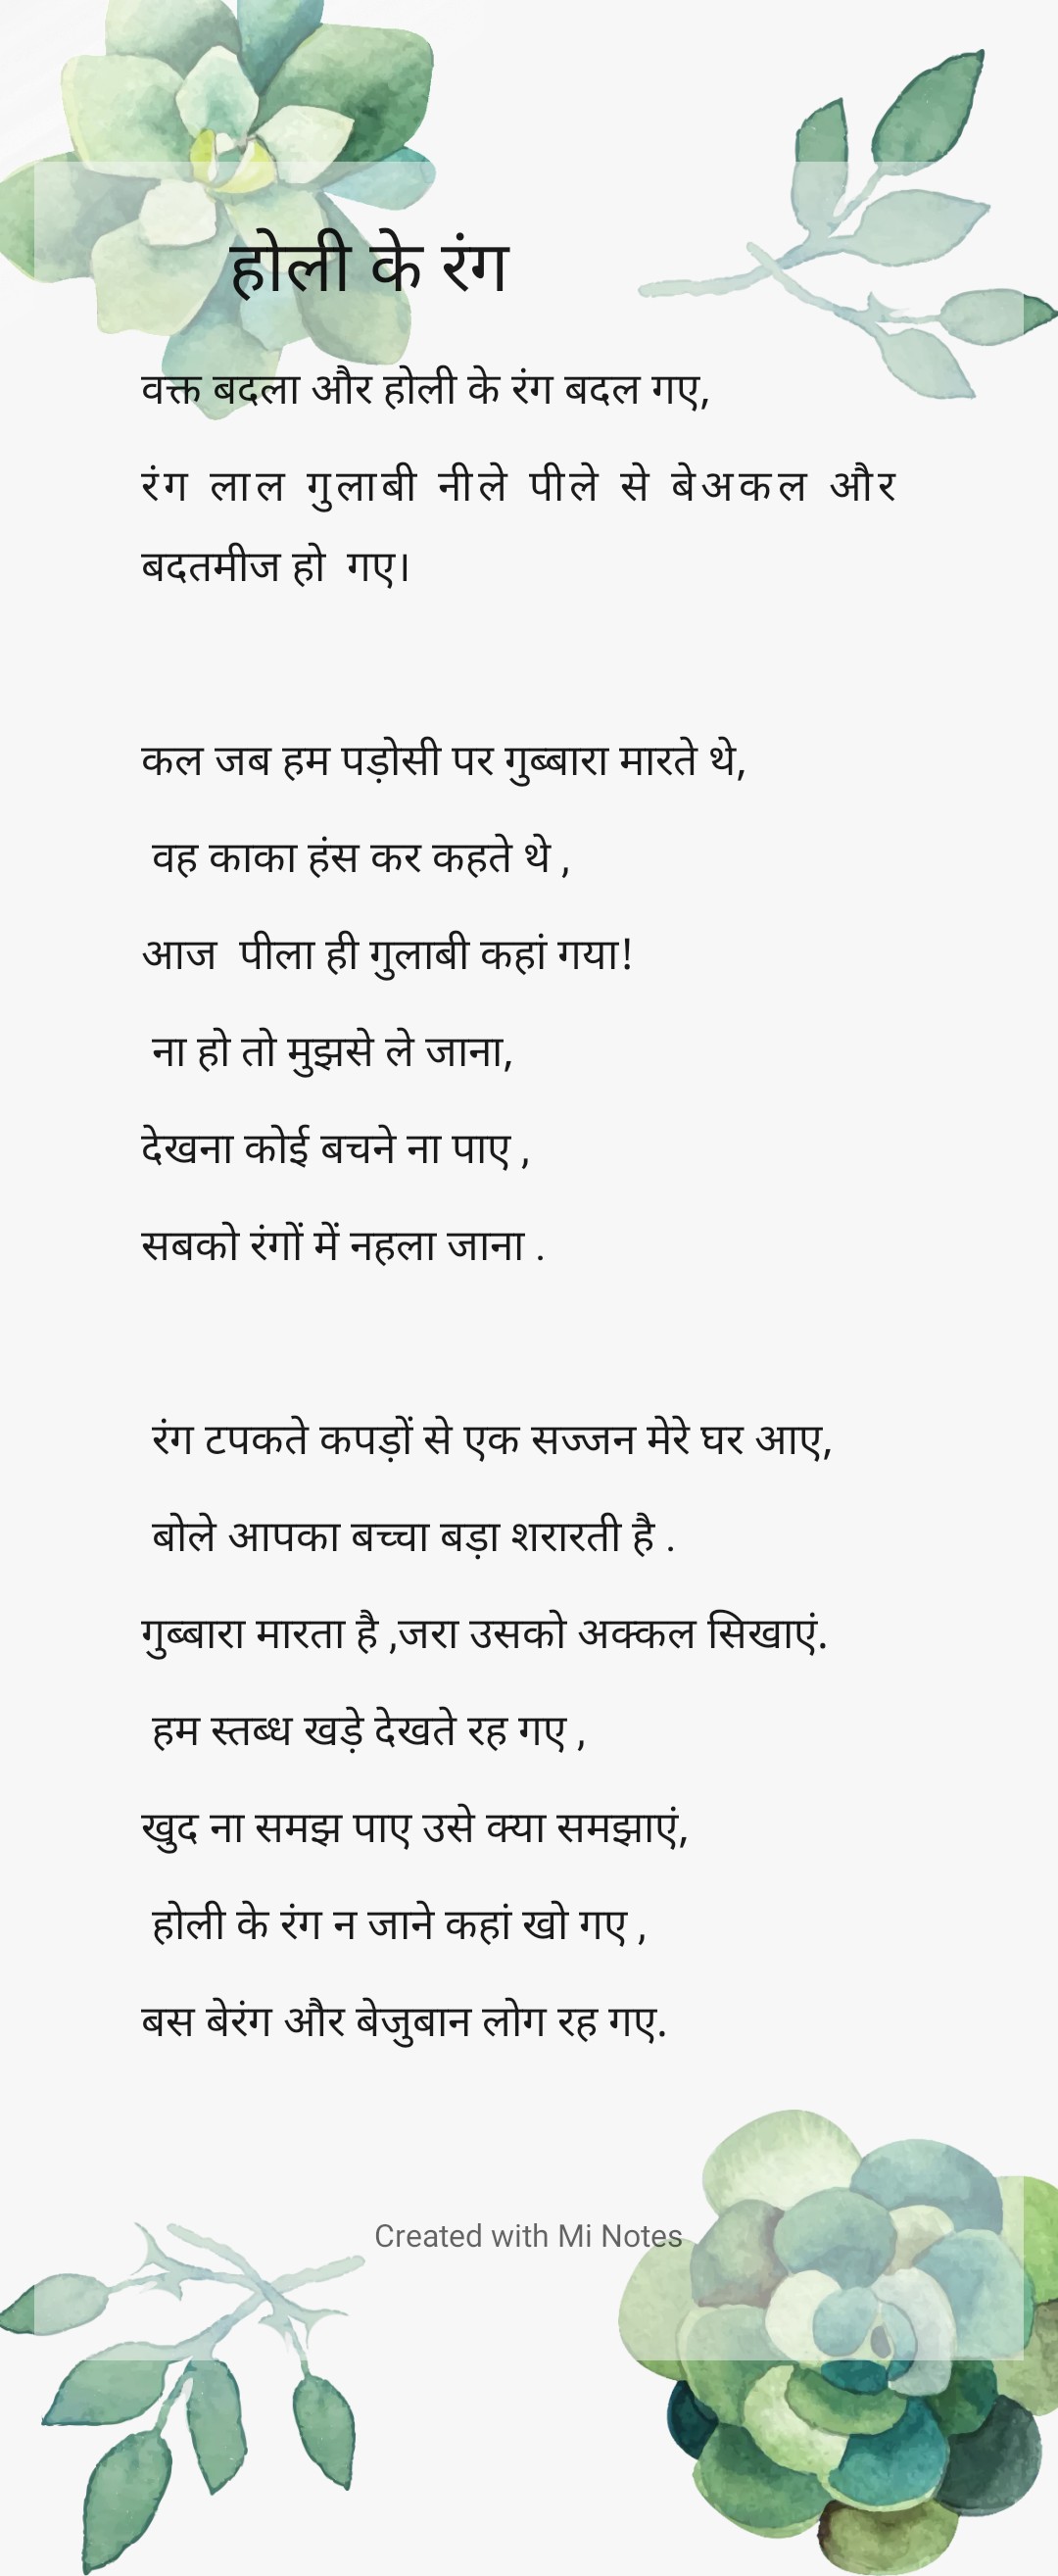 होली के रंग
वक्त बदला और होली के रंग बदल गए,
रंग लाल गुलाबी नीले पीले से बेअकल और
बदतमीज हो  गए।
कल जब हम पड़ोसी पर गुब्बारा मारते थे,
वह काका हंस कर कहते थे ,
आज  पीला ही गुलाबी कहां गया!
ना हो तो मुझसे ले जाना,
देखना कोई बचने ना पाए ,
सबको रंगों में नहला जाना .
रंग टपकते कपड़ों से एक सज्जन मेरे घर आए,
बोले आपका बच्चा बड़ा शरारती है .
गुब्बारा मारता है ,जरा उसको अक्कल सिखाएं.
हम स्तब्ध खड़े देखते रह गए ,
खुद ना समझ पाए उसे क्या समझाएं,
होली के रंग न जाने कहां खो गए ,
बस बेरंग और बेजुबान लोग रह गए.
Created with Mi Notes